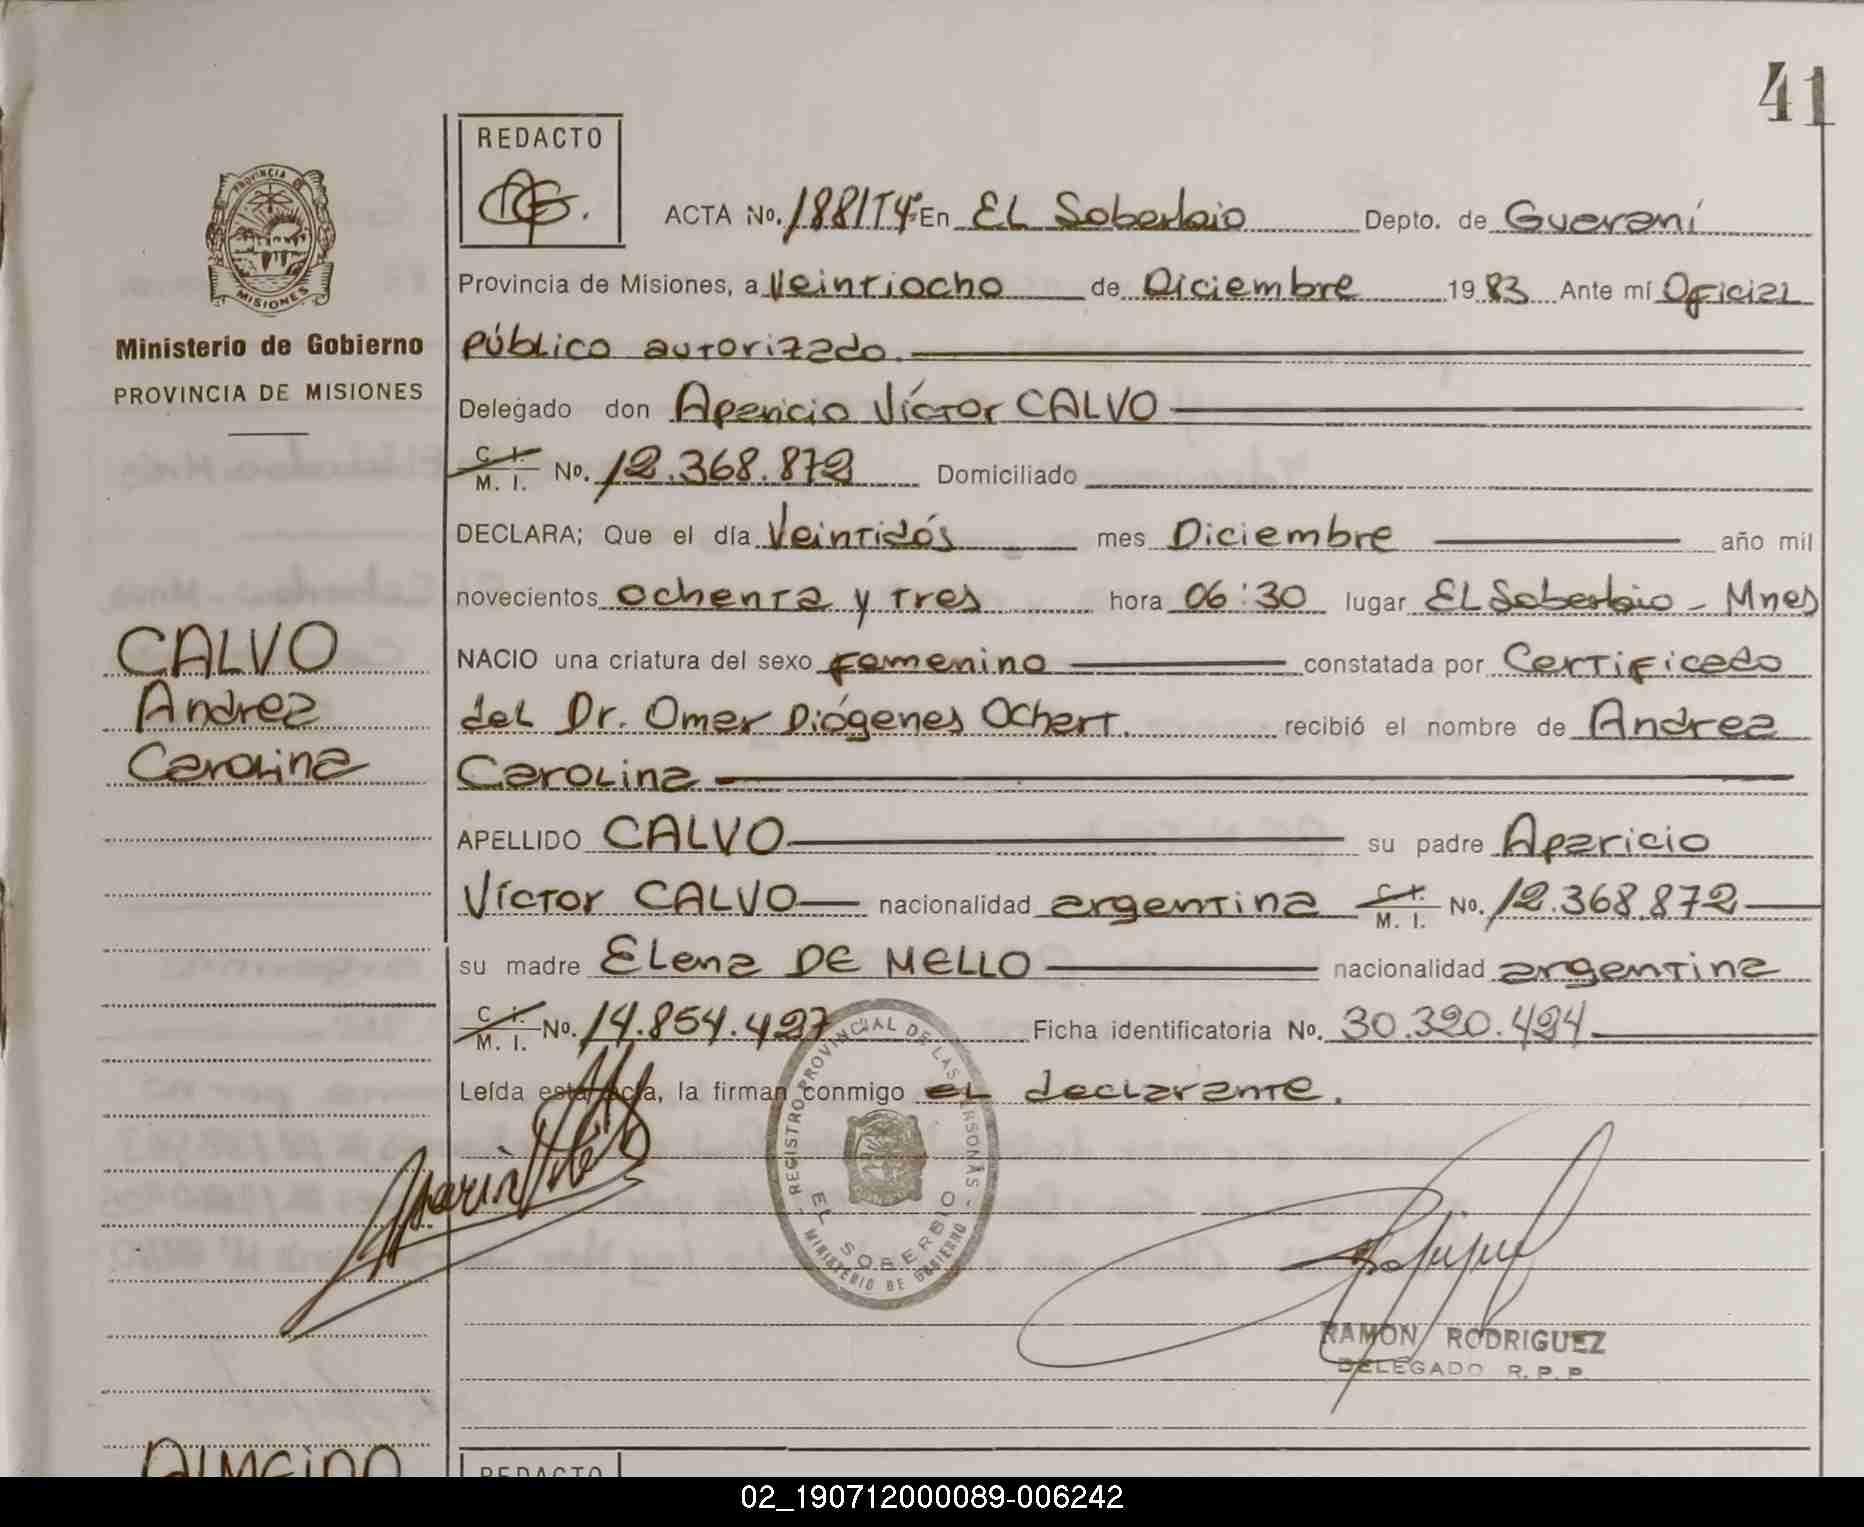 41
REDACTO
PROVINCIA DE
MISIONES
Ministerio de Gobierno
PROVINCIA DE MISIONES
ACTA No. 188IT4º En EL Soberbio Depto. de Guaraní
Provincia de Misiones, a Veintiocho de Diciembre 19 83 Ante mí Oficial
Público autorizado.
Delegado don Aparicio Víctor CALVO
C. I. M. I. No. 12.368.872 Domiciliado
DECLARA; Que el día Veintidós mes Diciembre año mil
novecientos ochenta y tres hora 06:30 lugar EL Soberbio - Mnes
CALVO
Andrea
Carolina
NACIO una criatura del sexo femenino constatada por Certificado
del Dr. Omar Diógenes Ochert. recibió el nombre de Andrea
Carolina
APELLIDO CALVO su padre Aparicio
Víctor CALVO nacionalidad argentina C. I. M. I. No. 12.368.872
su madre Elena DE MELLO nacionalidad argentina
C. I. M. I. No. 14.854.427 Ficha identificatoria No. 30.320.424
Leída esta acta, la firman conmigo el declarante.
REGISTRO PROVINCIAL DE LAS PERSONAS -
EL SOBERBIO
- MINISTERIO DE GOBIERNO
RAMON RODRIGUEZ
DELEGADO R. P. P.
ALMEIDA
REDACTO
02_190712000089-006242